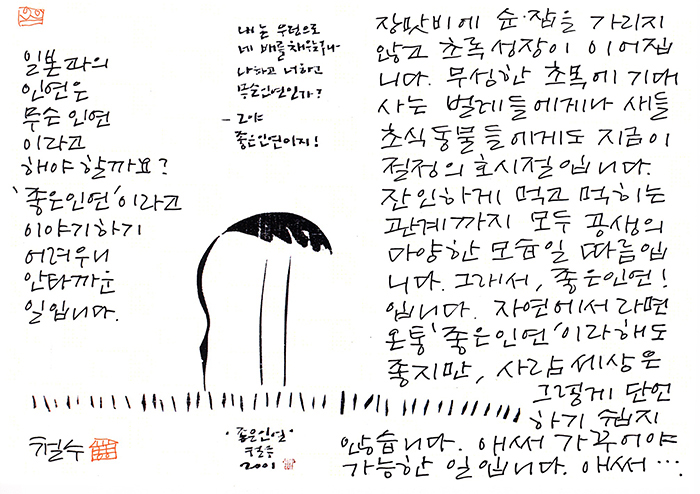 일본과의
인연은
무슨 인연
이라고
해야 할까요?
'좋은인연'이라고
이야기하기
어려우니
안타까운
일입니다.
네 배를
나하고 너하고
무슨인연인가?
- 그야
좋은인연이지!
장맛비에 순·잡을 가리지
않고 초록성장이 이어집
니다. 무성한 초목에 기대
사는 벌레들에게나 새들
초식동물들에게도 지금이
절정의 호시절입니다.
잔인하게 먹고 먹히는
관계까지 모두 공생의
다양한 모습일 따름입
니다. 그래서, 좋은인연!
입니다. 자연에서라면
온통 '좋은인연'이라 해도
좋지만, 사람세상은
그렇게 단언
하기 쉽지
않습니다. 애써 가꾸어야
가능한 일입니다. 애써….
철수
'좋은인연'
2001